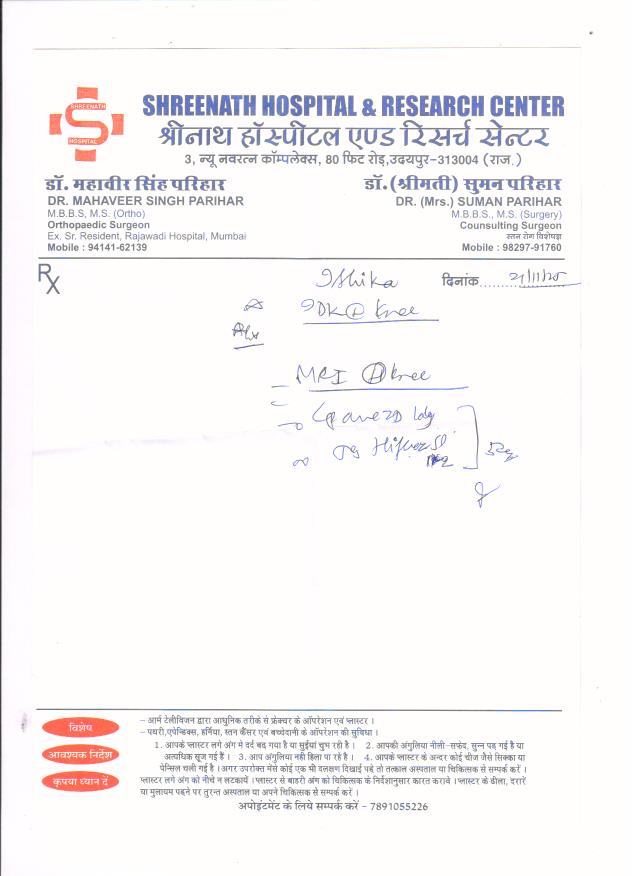 SHREENATH
HOSPITAL
SHREENATH HOSPITAL & RESEARCH CENTER
श्रीनाथ हॉस्पीटल एण्ड रिसर्च सेन्टर
3, न्यू नवरत्न कॉम्पलेक्स, 80 फिट रोड़,उदयपुर-313004 (राज.)
डॉ. महावीर सिंह परिहार
DR. MAHAVEER SINGH PARIHAR
M.B.B.S, M.S. (Ortho)
Orthopaedic Surgeon
Ex. Sr. Resident, Rajawadi Hospital, Mumbai
Mobile : 94141-62139
डॉ.(श्रीमती) सुमन परिहार
DR. (Mrs.) SUMAN PARIHAR
M.B.B.S., M.S. (Surgery)
Counsulting Surgeon
स्तन रोग विशेषज्ञ
Mobile : 98297-91760
Rx
Ishika
दिनांक 21/11/25
IDK knee
MRI knee
विशेष
आवश्यक निर्देश
कृपया ध्यान दें
– आर्म टेलीविजन द्वारा आधुनिक तरीके से फ्रेक्चर के ऑपरेशन एवं प्लास्टर ।
– पथरी,एपेन्डिक्स, हर्निया, स्तन कैंसर एवं बच्चेदानी के ऑपरेशन की सुविधा ।
1. आपके प्लास्टर लगे अंग मे दर्द बद गया है या सुईयां चुभ रही है । 2. आपकी अंगुलिया नीली-सफेद, सुन्न पड़ गई है या
अत्यधिक सूज गई हैं । 3. आप अंगुलिया नही हिला पा रहे है । 4. आपके प्लास्टर के अन्दर कोई चीज जैसे सिक्का या
पेन्सिल चली गई है । अगर उपरोक्त मेंसे कोई एक भी दलक्षण दिखाई पड़े तो तत्काल अस्पताल या चिकित्सक से सम्पर्क करें ।
प्लास्टर लगे अंग को नीचे न लटकायें । प्लास्टर से बाहरी अंग को चिकित्सक के निर्देशानुसार कारत करावे । प्लास्टर के ढीला, दरारें
या मुलायम पड़ने पर तुरन्त अस्पताल या अपने चिकित्सक से सम्पर्क करें ।
अपोइंटमेंट के लिये सम्पर्क करें - 7891055226